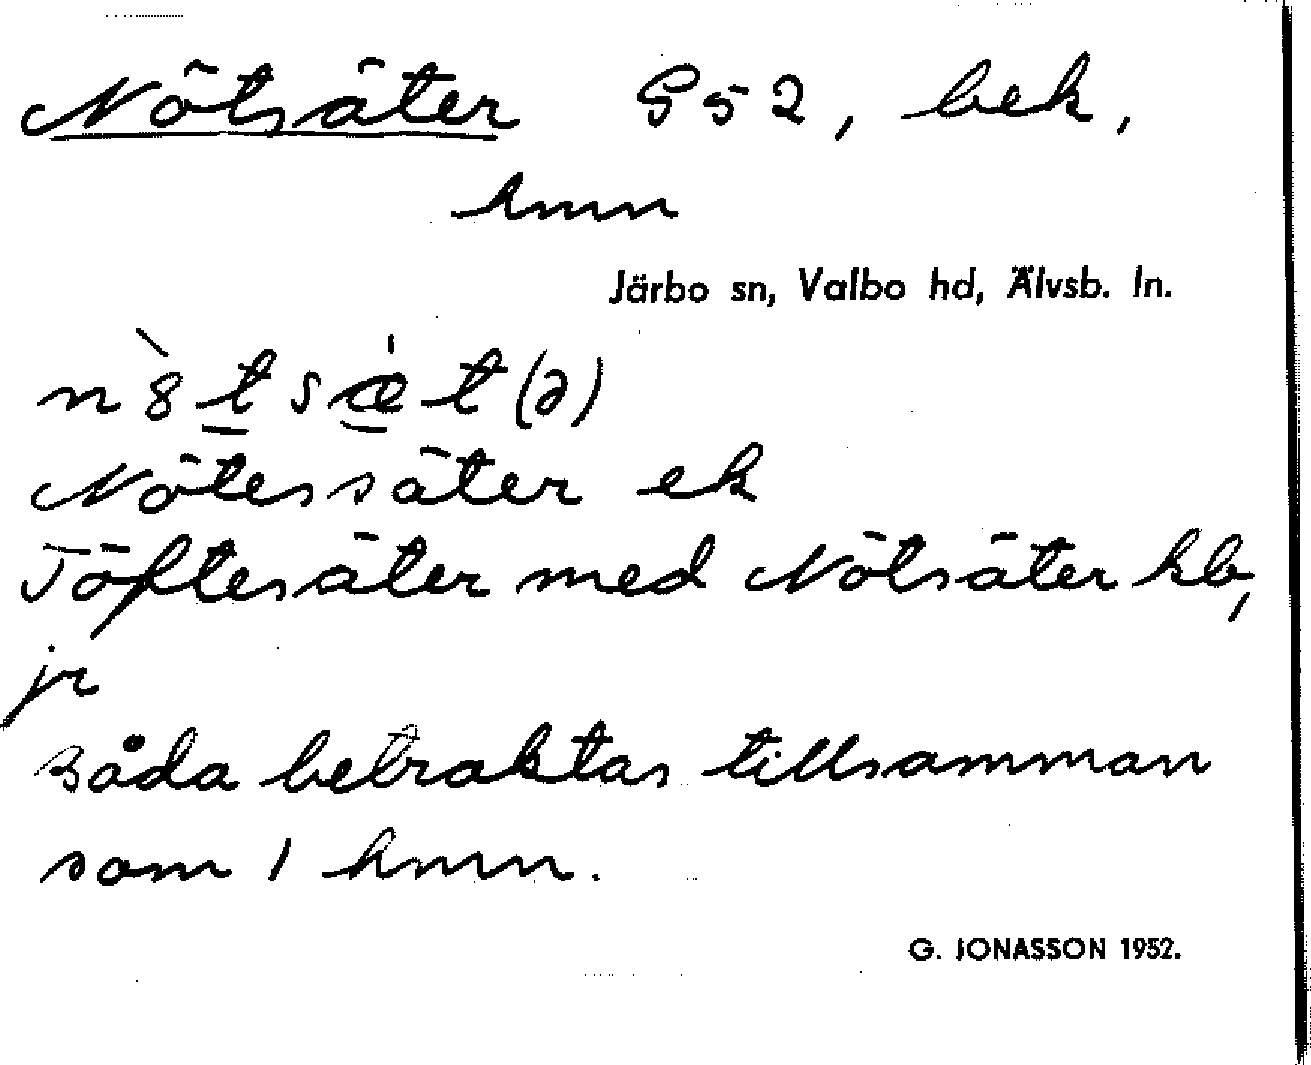 Nötsäter G52, bek,
hmn
Järbo sn, Valbo hd, Älvsb. ln.
n8̀tsæ̍t(ə)
Nötessäter ek
Töftesäter med Nötsäter kb,
jr
Båda betraktas tillsamman
som 1 hmn.
G. JONASSON 1952.